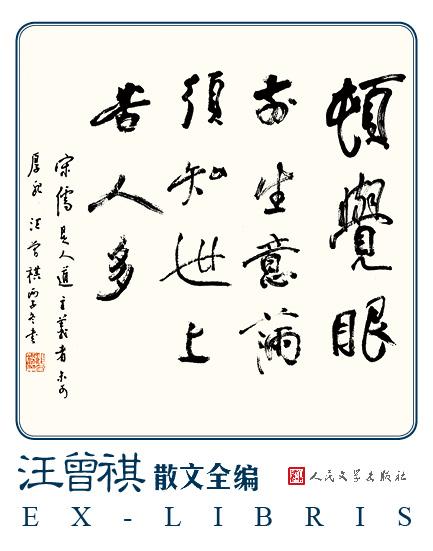 頓覺眼
前生意滿
須知世上
苦人多
宋儒是人道主義者未可
厚非 汪曾祺 丙子冬書
汪曾祺 散文全编
人民文学出版社
EX-LIBRIS